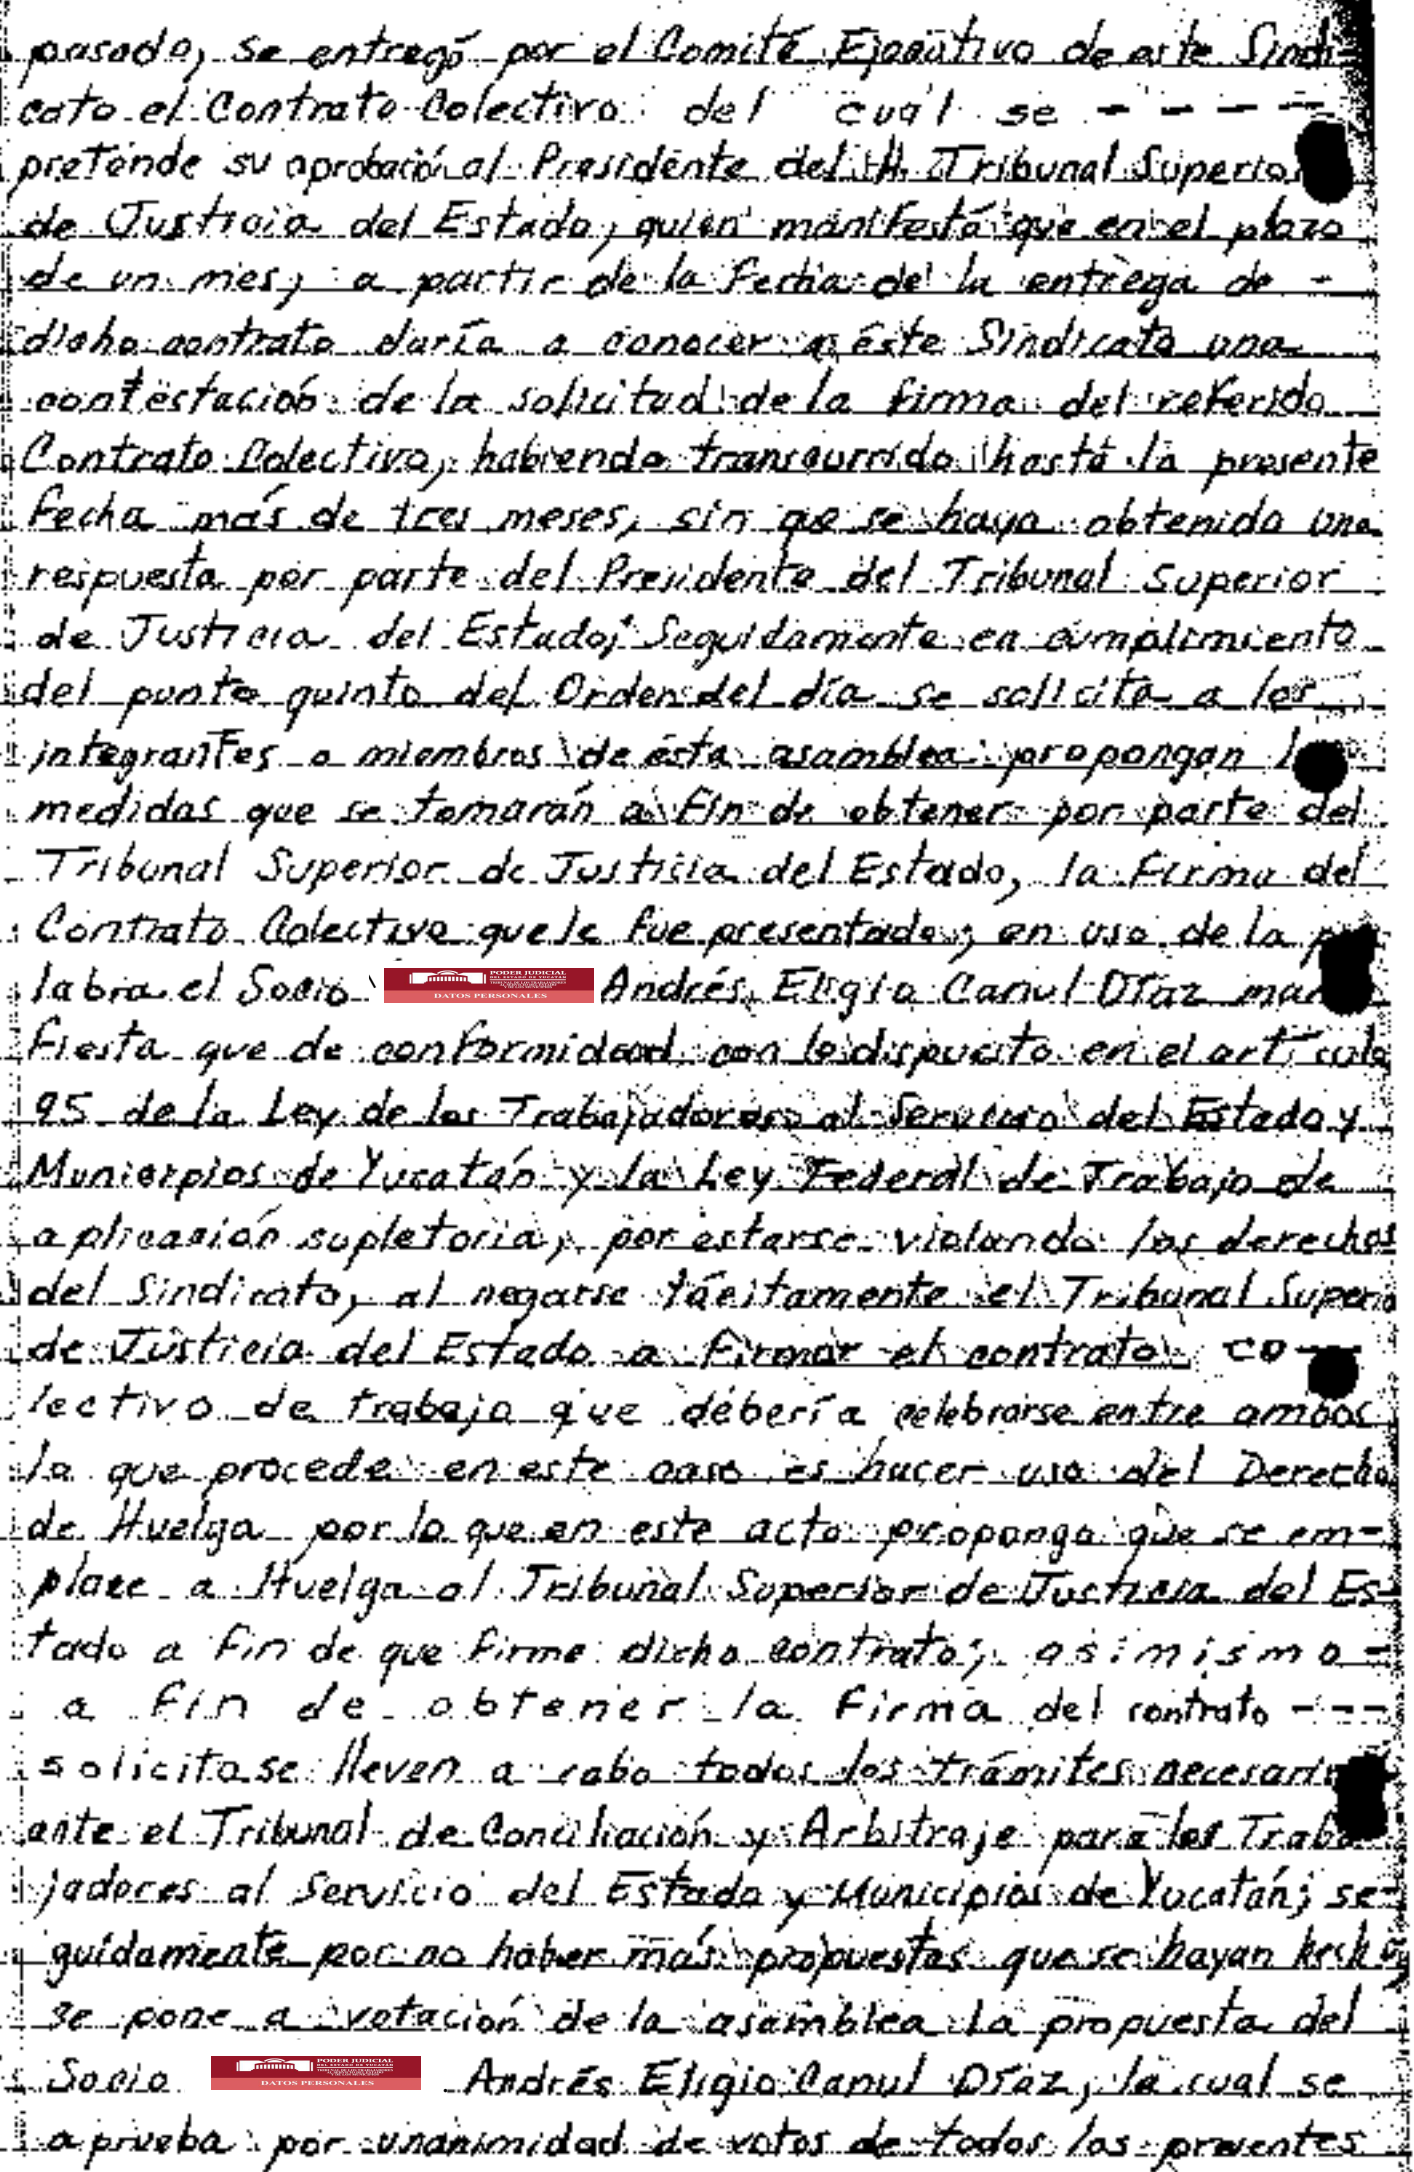 pasado, se entregó por el Comité Ejecutivo de este Sindi-
cato el Contrato Colectivo del cual se - - - - -
pretende su aprobación al Presidente del H. Tribunal Superior
de Justicia del Estado, quien manifestó que en el plazo
de un mes, a partir de la fecha de la entrega de -
dicho contrato daría a conocer a éste Sindicato una
contestación de la solicitud de la firma del referido
Contrato Colectivo, habiendo transcurrido hasta la presente
fecha más de tres meses, sin que se haya obtenido una
respuesta por parte del Presidente del Tribunal Superior
de Justicia del Estado; Seguidamente en cumplimiento
del punto quinto del Orden del día se solicita a los
integrantes o miembros de ésta asamblea propongan
medidas que se tomarán a fin de obtener por parte del
Tribunal Superior de Justicia del Estado, la firma del
Contrato Colectivo que le fue presentado; en uso de la pa-
labra el Socio PODER JUDICIAL DEL ESTADO DE YUCATÁN DATOS PERSONALES Andrés Eligio Canul Díaz mani-
fiesta que de conformidad con lo dispuesto en el artículo
95 de la Ley de los Trabajadores al Servicio del Estado y
Municipios de Yucatán y la Ley Federal de Trabajo de
aplicación supletoria, por estarse violando los derechos
del Sindicato, al negarse tácitamente el Tribunal Superio
de Justicia del Estado a firmar el contrato co-
lectivo de trabajo que debería celebrarse entre ambos
lo que procede en este caso es hacer uso del Derecho
de Huelga por lo que en este acto propongo que se em-
place a Huelga al Tribunal Superior de Justicia del Es-
tado a fin de que firme dicho contrato; asimismo -
a fin de obtener la firma del contrato - - -
solicita se lleven a cabo todos los trámites necesarios
ante el Tribunal de Conciliación y Arbitraje para los Traba-
jadores al Servicio del Estado y Municipios de Yucatán; se-
guidamente por no haber más propuestas que se hayan hecho,
se pone a votación de la asamblea la propuesta del
Socio PODER JUDICIAL DEL ESTADO DE YUCATÁN DATOS PERSONALES Andrés Eligio Canul Díaz, la cual se
aprueba por unanimidad de votos de todos los presentes